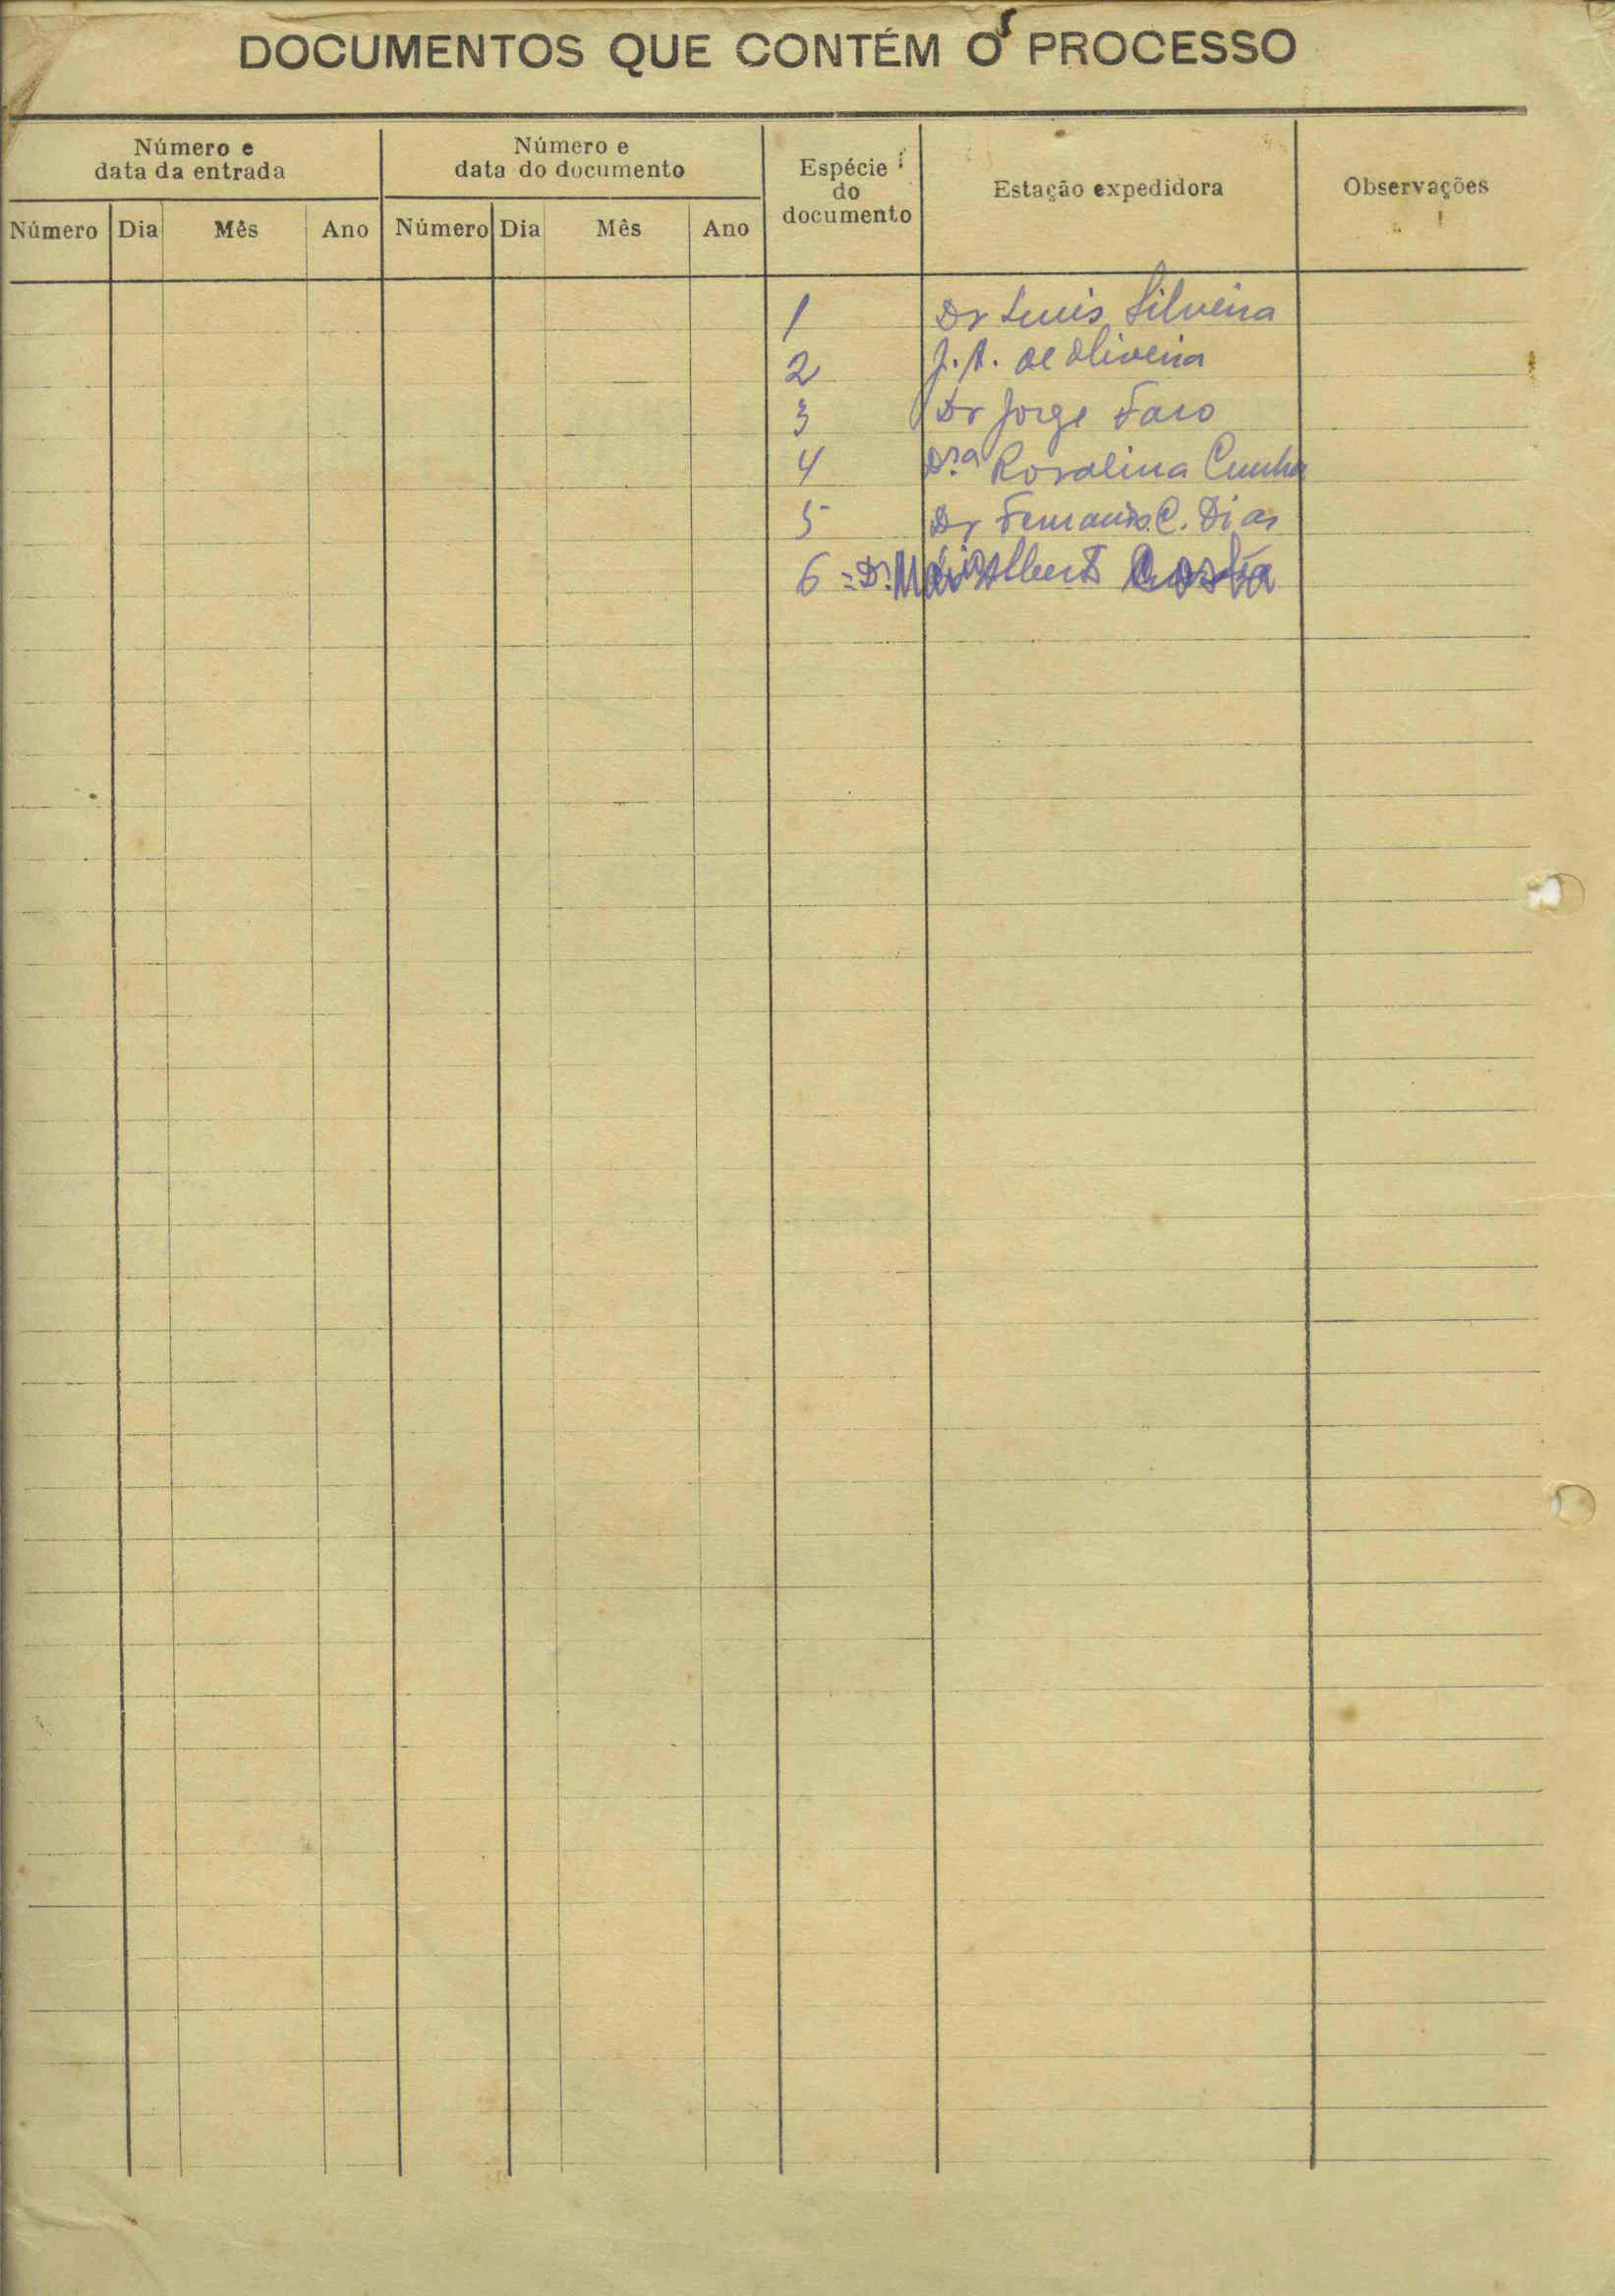 DOCUMENTOS QUE CONTÉM O PROCESSO
Número e
data da entrada
Número e
data do documento
Espécie
do
documento
Estação expedidora
Observações
Número Dia Mês Ano Número Dia Mês Ano
1 Dr Luis Silveira
2 J. A. de Oliveira
3 Dr Jorge Faro
4 Dr.a Rosalina Cunha
5 Dr Fernando C. Dias
6 = Dr. Mário Alberto Costa